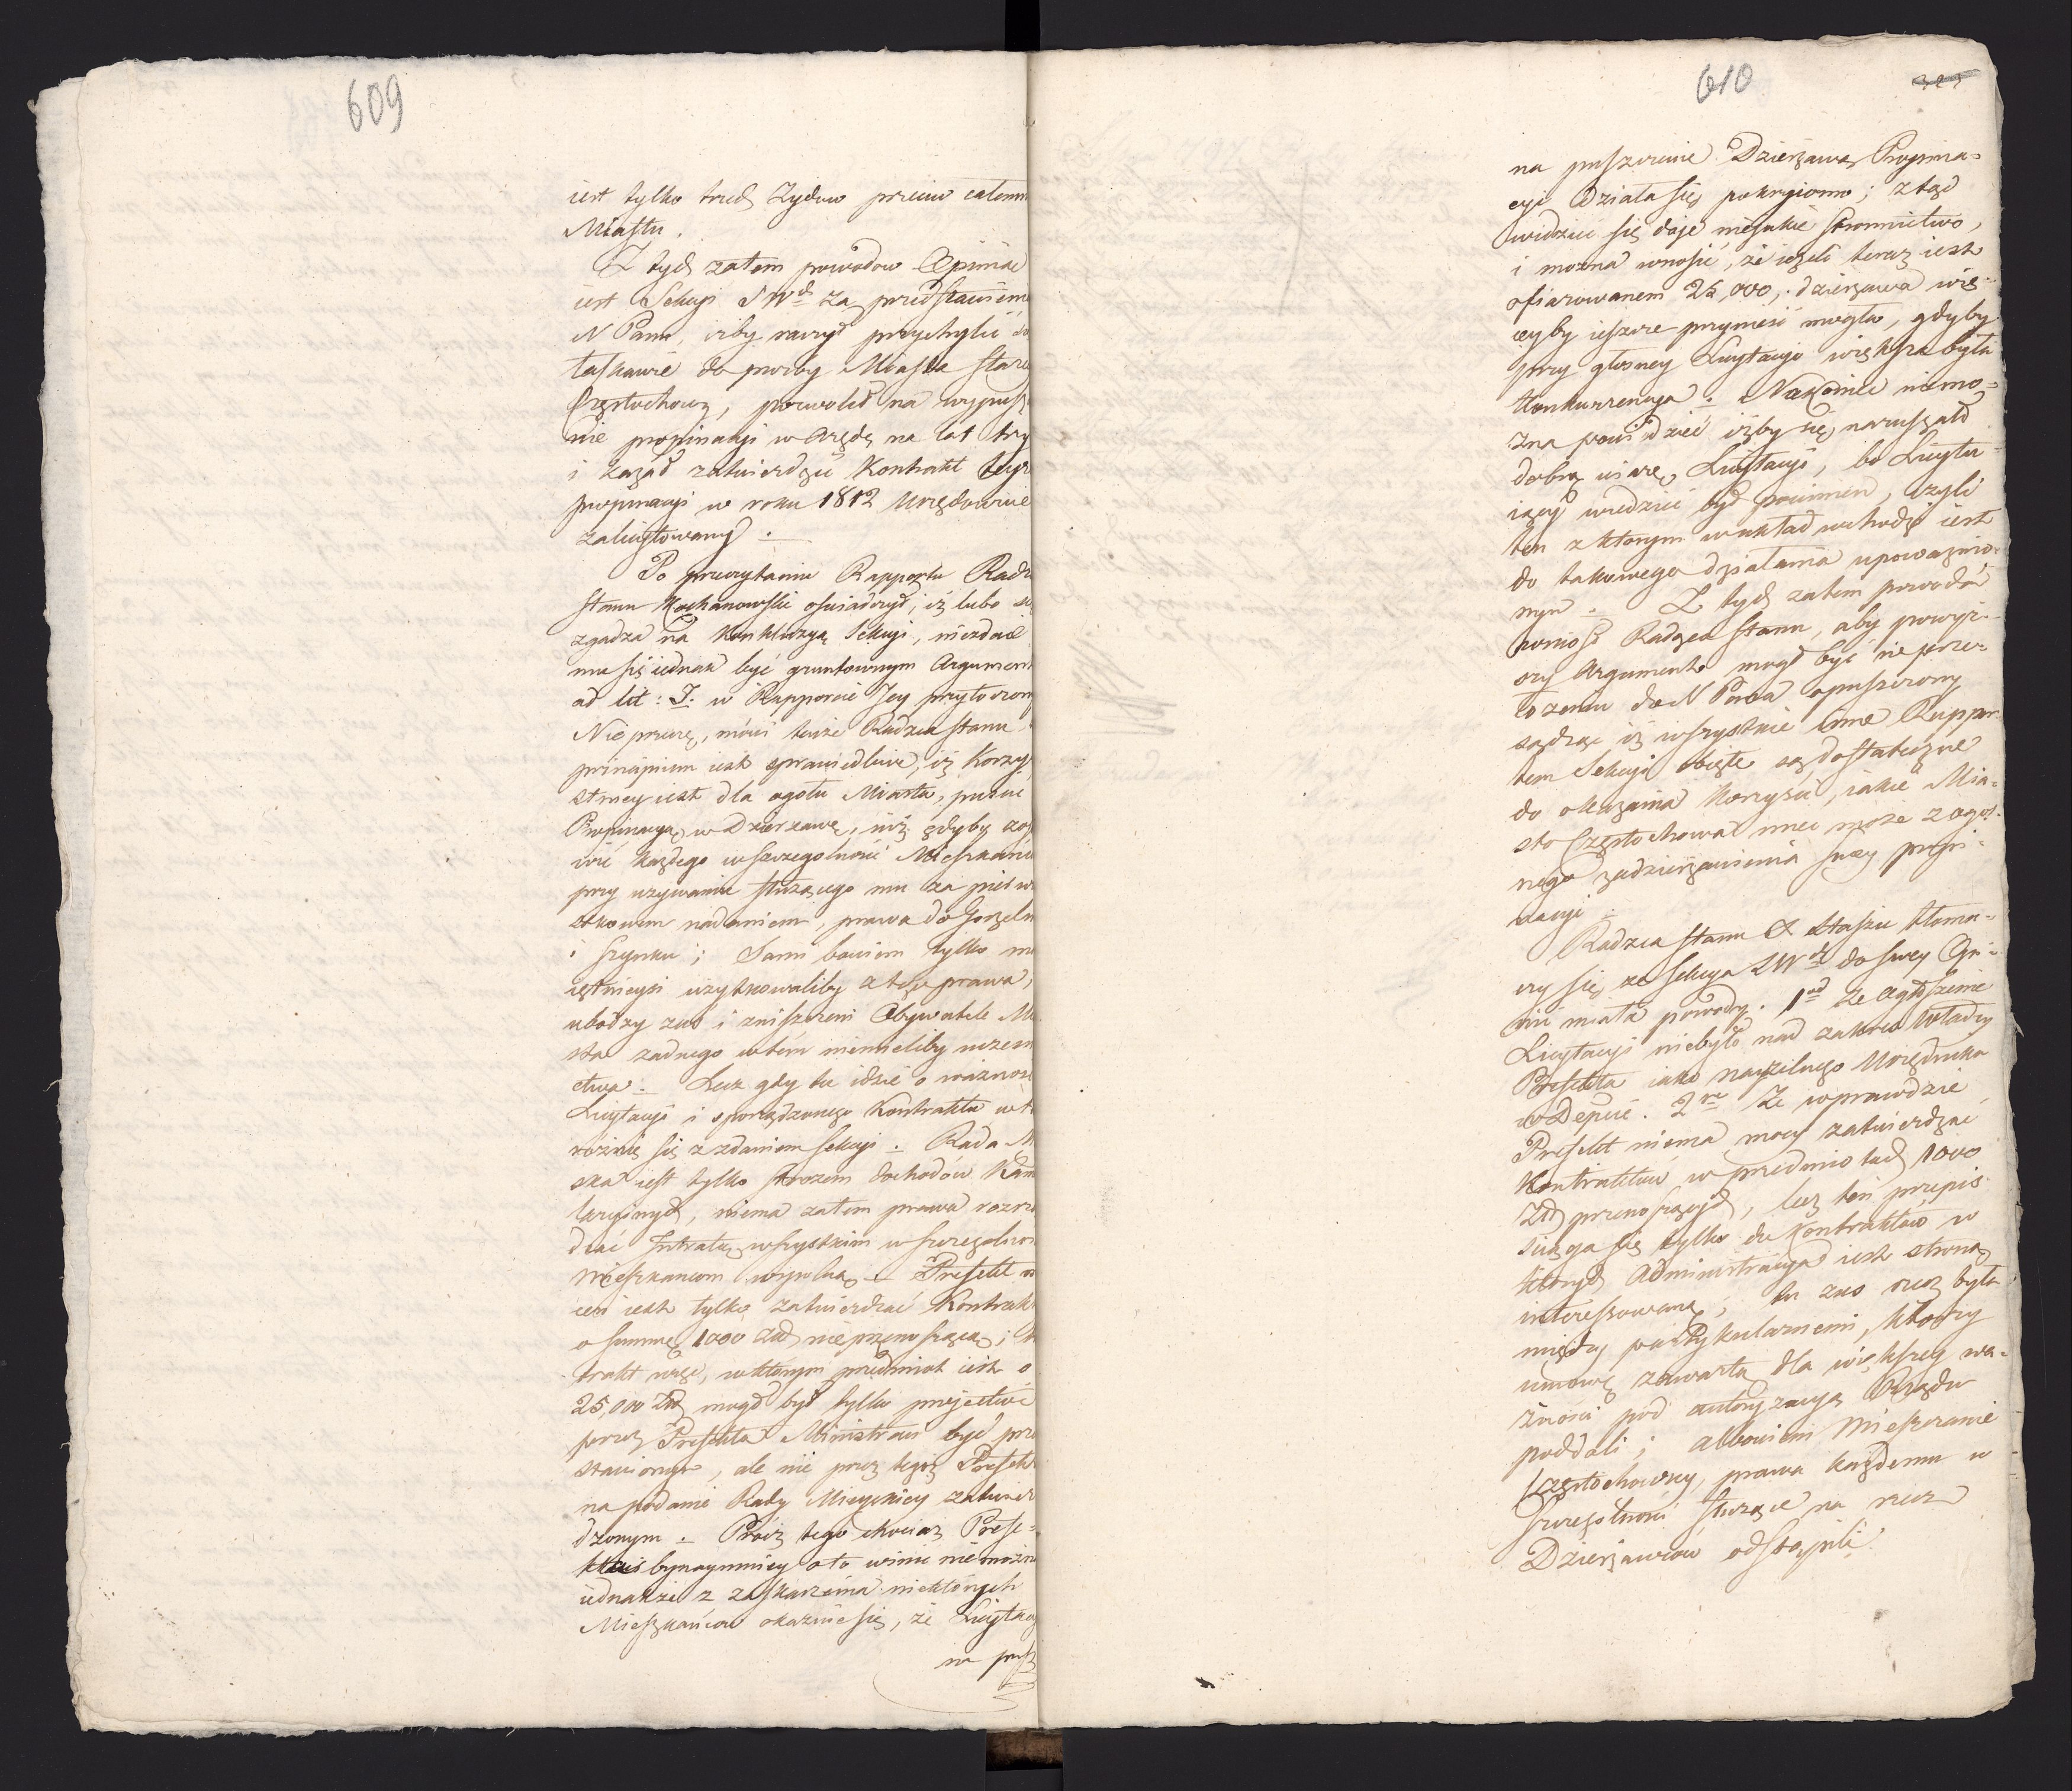 609
iest tylko trud Żydow przeciw całem
Miastu.
Z tych zatem powodow Opinie
iest Sekcyi SWd za przedstawieniem
N Panu, iżby raczył przychylić
łaskawie do prozby Miasta Stare
Częstochowy, pozwolić na wypusz
nie propinacyi w Arędę na lat trzy
i kazał zatwierdzić Kontrakt teyż
propinacyi w roku 1812 Urzędownie
zalicytowany.
Po przeczytaniu Rapportu Radca
Stanu Kochanowski oświadczył, iż lubo się
zgadza na Konkluzyą Sekcyi, niezdaie
mu się iednak być gruntownym Argument
ad lit: J. w Rapporcie Jey przytoczony
Nie przeczę, mówi tenże Radca Stanu,
principium iest sprawiedliwe, iż Korzy
stniey iest dla ogołu Miasta, puścić
Propinacyą w Dzierzawę, niż gdyby zos
wić każdego w szczegolności Mieszkańca
przy uzywaniu służącego mu za pierw
stkowem nadaniem, prawa do Gorzeln
i Szynku; Sami bowiem tylko ma
iętnieysi użytkowaliby z tego prawa,
ubodzy zaś i zniszczeni Obywatele Mia
sta żadnego w tem niemieliby uczestni
ctwa. Lecz gdy tu idzie o ważność
Licytacyi i sporządzonego Kontraktu w t
rożnię się z zdaniem Sekcyi. Rada M
ska iest tylko strożem dochodów Kam
laryinych, niema zatem prawa rozrzą
dzać Intratą wszystkim w szczegolnoś
Mieszkancom wspolną. Prefekt
cen iest tylko zatwierdzać Kontrakt
o summę 1000 Złł nieprzenoszącą;
trakt więc, w ktorym przedmiot iest o
25,000 Złł mogł być tylko projective
przez Prefekta Ministrowi być prze
stawionym, ale nie przez tegoż Prefekt
na podanie Rady Mieyskiey zatwier
dzonym. Prócz tego chociaż Prefe=
kta bynaymniey o to winić niemożna
iednakże z zaskarżenia niektórych
Mieszkańcow okazuie się, że Licytacy
na pusz
610
na puszczenie Dzierżawą Propina=
cyi działa się pokryiomo; ztąd
widzieć się daje nieiakie stronnictwo,
i można wnosić, że ieżeli teraz iest
ofiarowanem 25,000, dzierżawa wię=
cey by ieszcze przynieść mogła, gdyby
przy głosney Licytacyi większa była
Konkurrencya. Nakoniec niemo=
żna powiedzieć iżby się naruszało
dobrą wiarę Licytacyi, bo Licytu=
iący wiedzieć był powinien, czyli
ten z ktorym w układ wchodzi iest
do takowego działania upoważnio=
nym. Z tych zatem powodów
wniosł Radca Stanu, aby powyż=
szy Argument mogł być nie przez
tożeniu do N Pana opuszczony
sądząc iż wszystkie inne Rappor=
tem Sekcyi obięte są dostateczne
do okazania Korzyści, iakie Mia=
sto Częstochowa mieć może z ogol=
nego zadzierżawienia swey propi=
nacyi.
Radca Stanu X Staszic tłoma=
czy się że Sekcya SWd do swey Opi=
nii miała powody. 1ᵐᵒ że ogłoszenie
Licytacyi niebyło nad zakres Władzy
Prefekta iako naczelnego Urzędnika
w Depcie. 2ʳᵉ Że wprawdzie
Prefekt niema mocy zatwierdzać
Kontraktów w przedmiotach 1000
Złł przenoszących, lecz ten przepis
ściąga się tylko do Kontraktów w
ktorych Administracya iest stroną
interessowaną; tu zaś rzecz była
między partykularnemi, ktorzy
umowę zawartą dla większey wa=
żności pod autoryzacyą Rządu
poddali; albowiem Mieszczanie
Częstochowscy, prawa każdemu w
szczegolności służące na rzecz
Dzierżawców odstąpili.